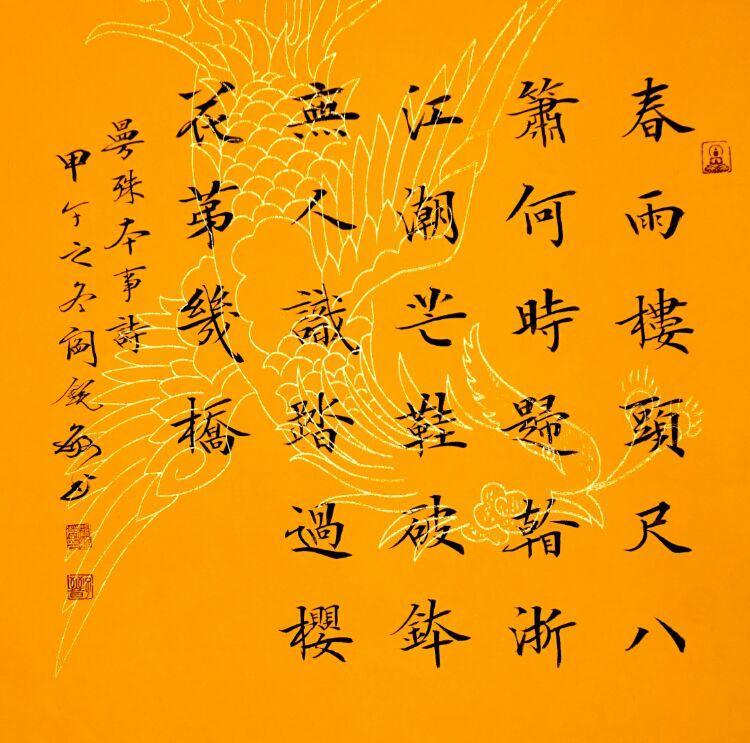 春雨樓頭尺八
簫何時歸看浙
江潮芒鞋破鉢
無人識踏過櫻
花苐幾橋
曼殊本事詩
甲午之冬閻銳敏书